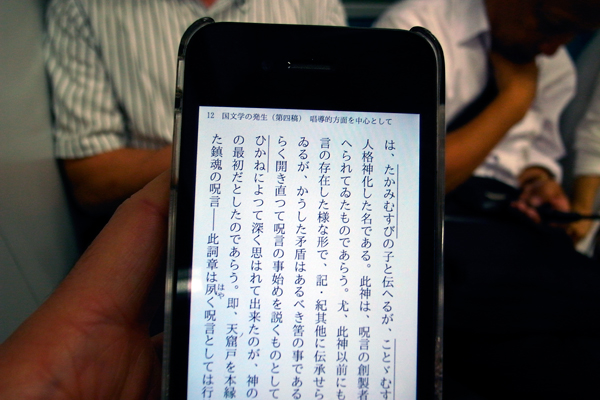 12 国文学の発生（第四稿） 唱導的方面を中心として
は、たかみむすびの子と伝へるが、ことゞむす
人格神化した名である。此神は、呪言の創製者
へられてゐたものであらう。尤、此神以前にも
言の存在した様な形で、記・紀其他に伝承せら
ゐるが、かうした矛盾はあるべき筈の事である
らく開き直つて呪言の事始めを説くものとして
ひかねによつて深く思はれて出来たのが、神の
の最初だとしたのであらう。即、天窟戸を本縁
た鎮魂の呪言――此詞章は夙はやく呪言としては行